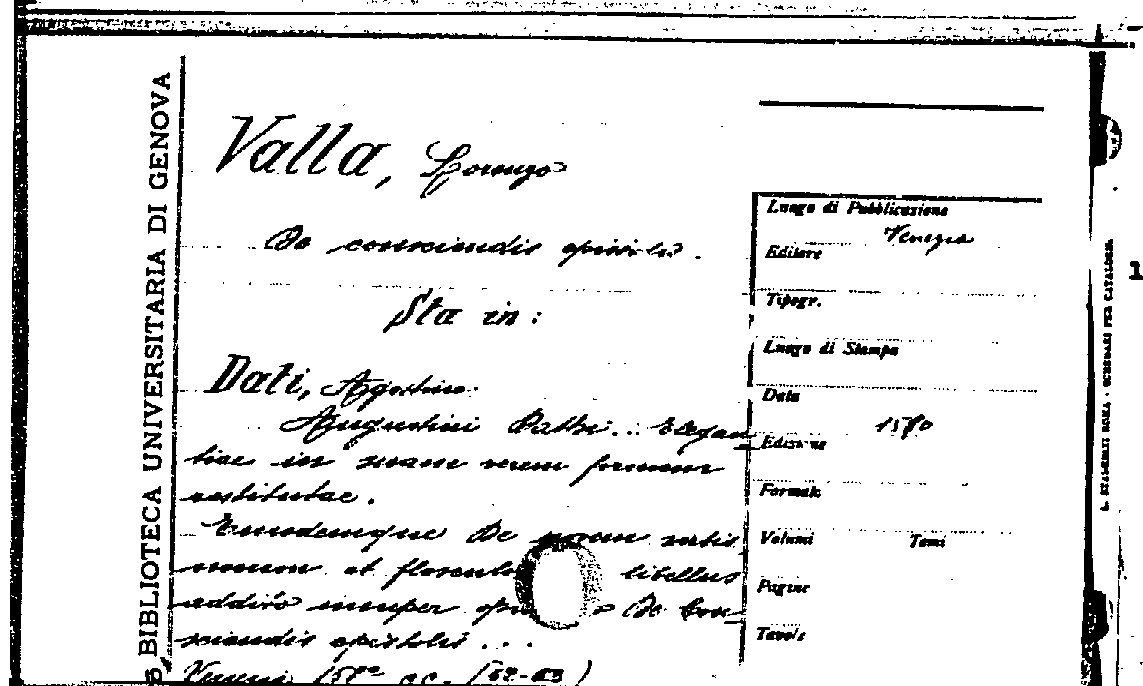 BIBLIOTECA UNIVERSITARIA DI GENOVA
Valla, Lorenzo
De conscriendis epistolis.
Sta in:
Dati, Agostino
Augustini Dathi... Elegan
tiae in suam veram formam
restitutae.
Eiusdemque De novem
et libellus
addito insuper De Con
sciendis epistolis ...
15 cc. (
Luogo di Pubblicazione
Venezia
Editore
Tipogr.
Luogo di Stampa
Data
Edizione
Formato
Volumi Tomi
Pagine
Tavole
ROMA - SCHEDARI PER CATALOGHI